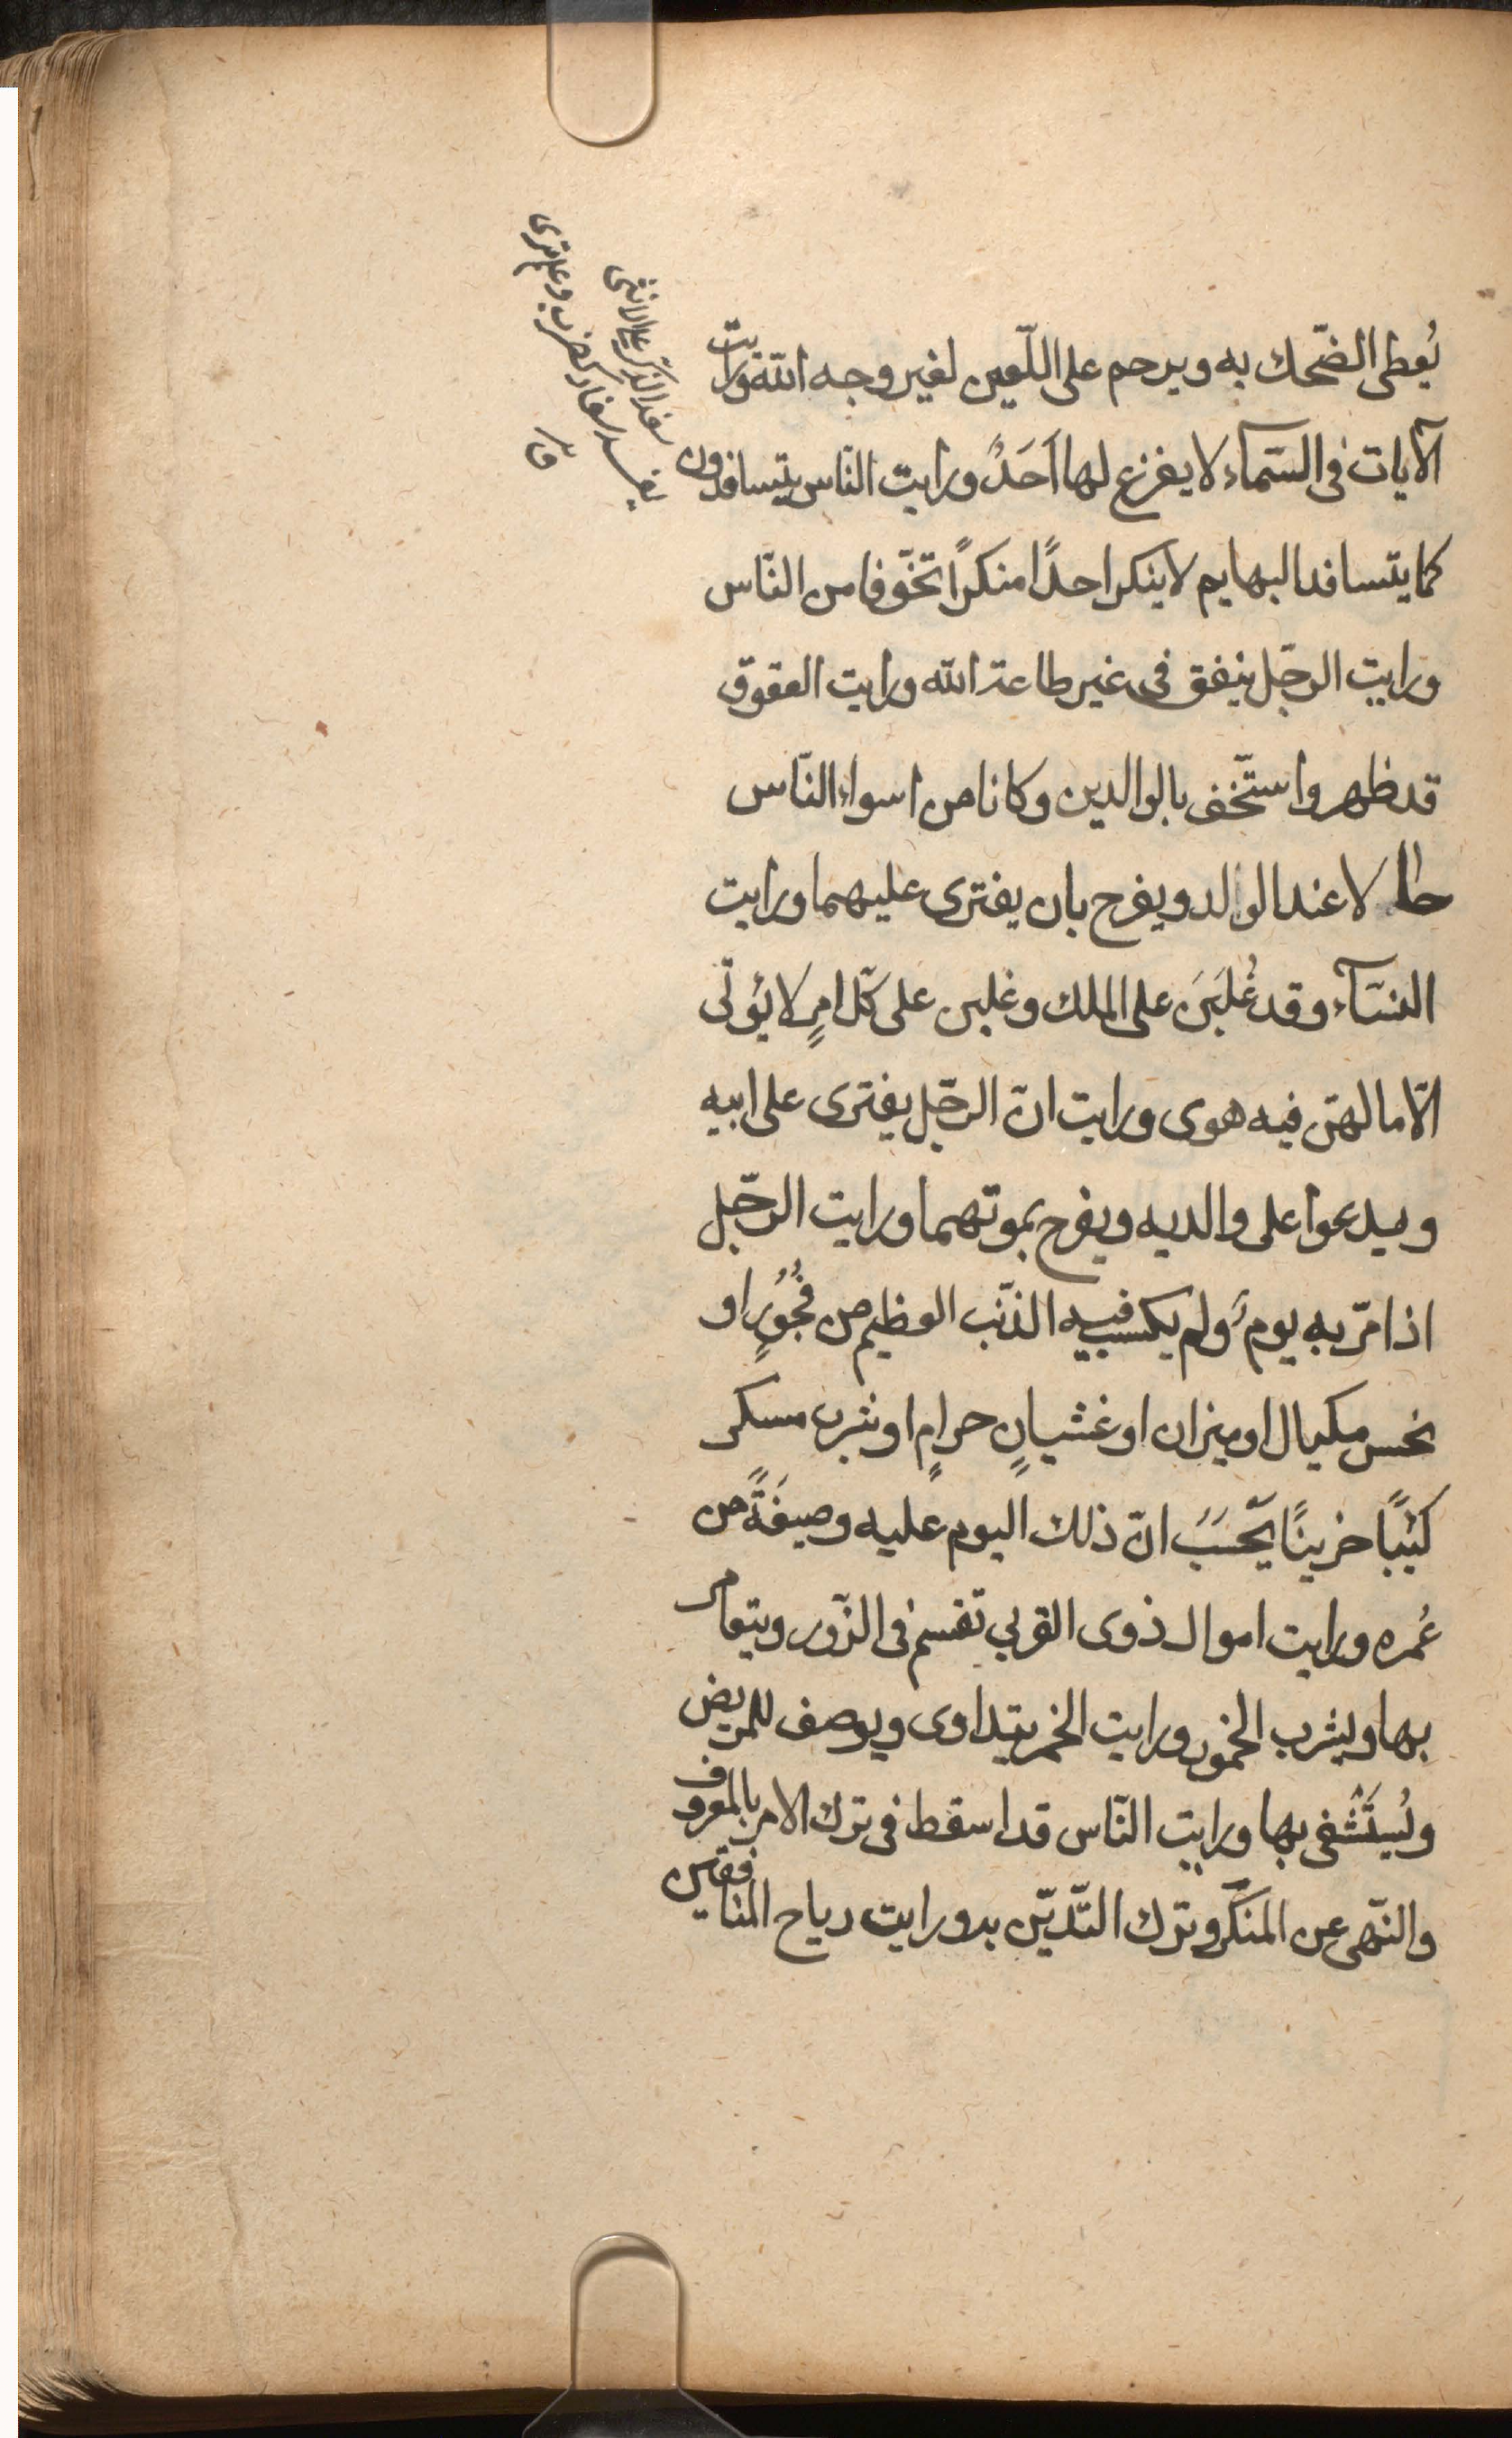 يُعطى الضّحك به ويرحم على اللّعين لغير وجه اللّه ورايت
الآيات فى السّمآء لا يفزع لها اَحَدٌ ورايت النّاس يتسافدون
كما يتسافد البهايم لا ينكر احدًا منكرًا تخّوفا من النّاس
ورايت الرجّل ينفق فى غير طاعة الله ورايت العقوق
قد ظهر واستّخف بالوالدين وكانا من اسواء النّاس
حالا لا عند الوالد ويفرح بان يفترى عليهما ورايت
النسّآء وقد غُلَبَنَ على الملك وغلبن على كلّ امرٍ لا يؤتى
الّا ما لهنّ فيه هوى ورايت انّ الرجّل يفترى على ابيه
ويدعوا على والديه ويفرح بموتهما ورايت الرجّل
اذا مرّ به يوم ولم يكسب فيه الذّنب العظيم من فُجُورٍ او
بخس مكيال او ميزان او غشيانٍ حرامٍ او شرب مسكر
كئيبًا حزينًا يحّسَبَ انّ ذلك اليوم عليه وصيفَةً من
عُمره ورايت اموال ذوى القربى تقسم فى الزّور ويتقامر
بها ويشرب الخمور ورايت الخمر يتداوى ويوصف للمريض
ويُستَشْفى بها ورايت النّاس قد اسقط فى ترك الامر بالمعروف
والنّهى عن المنكر وترك التّديّن به ورايت رياح المنافقين
سفد الذكر على الانثى
يفسد سفاد كضرب وعلم نزى
ق